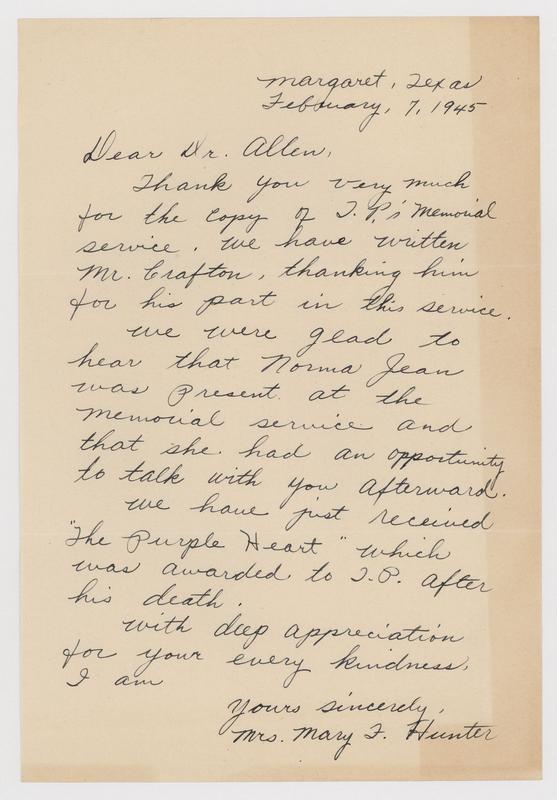 Margaret, Texas
February, 7, 1945
Dear Dr. Allen,
Thank you very much
for the copy of T. P.'s Memorial
service. We have written
Mr. Crafton, thanking him
for his part in this service.
We were glad to
hear that Norma Jean
was present at the
memorial service and
that she had an opportunity
to talk with you afterward.
We have just received
"The Purple Heart" which
was awarded to T.P. after
his death.
With deep appreciation
for your every kindness,
I am
Yours sincerely,
Mrs. Mary F. Hunter